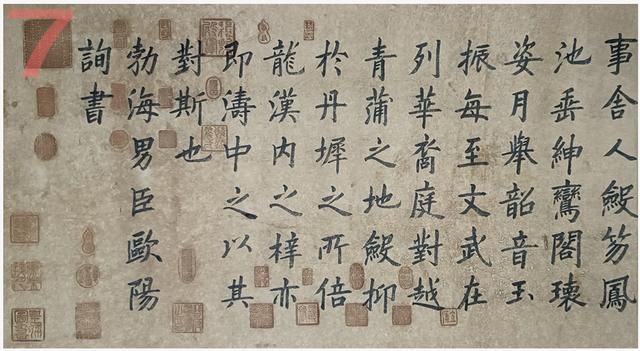 事舍人笏鳳
池垂紳鸞閣瓌
姿月舉韶音玉
振每至文武在
列華裔庭對越
青蒲之地抑
於丹墀之所倍
龍漢內之梓亦
即濤中之以其
對斯也
勃海男臣歐陽
詢書
7